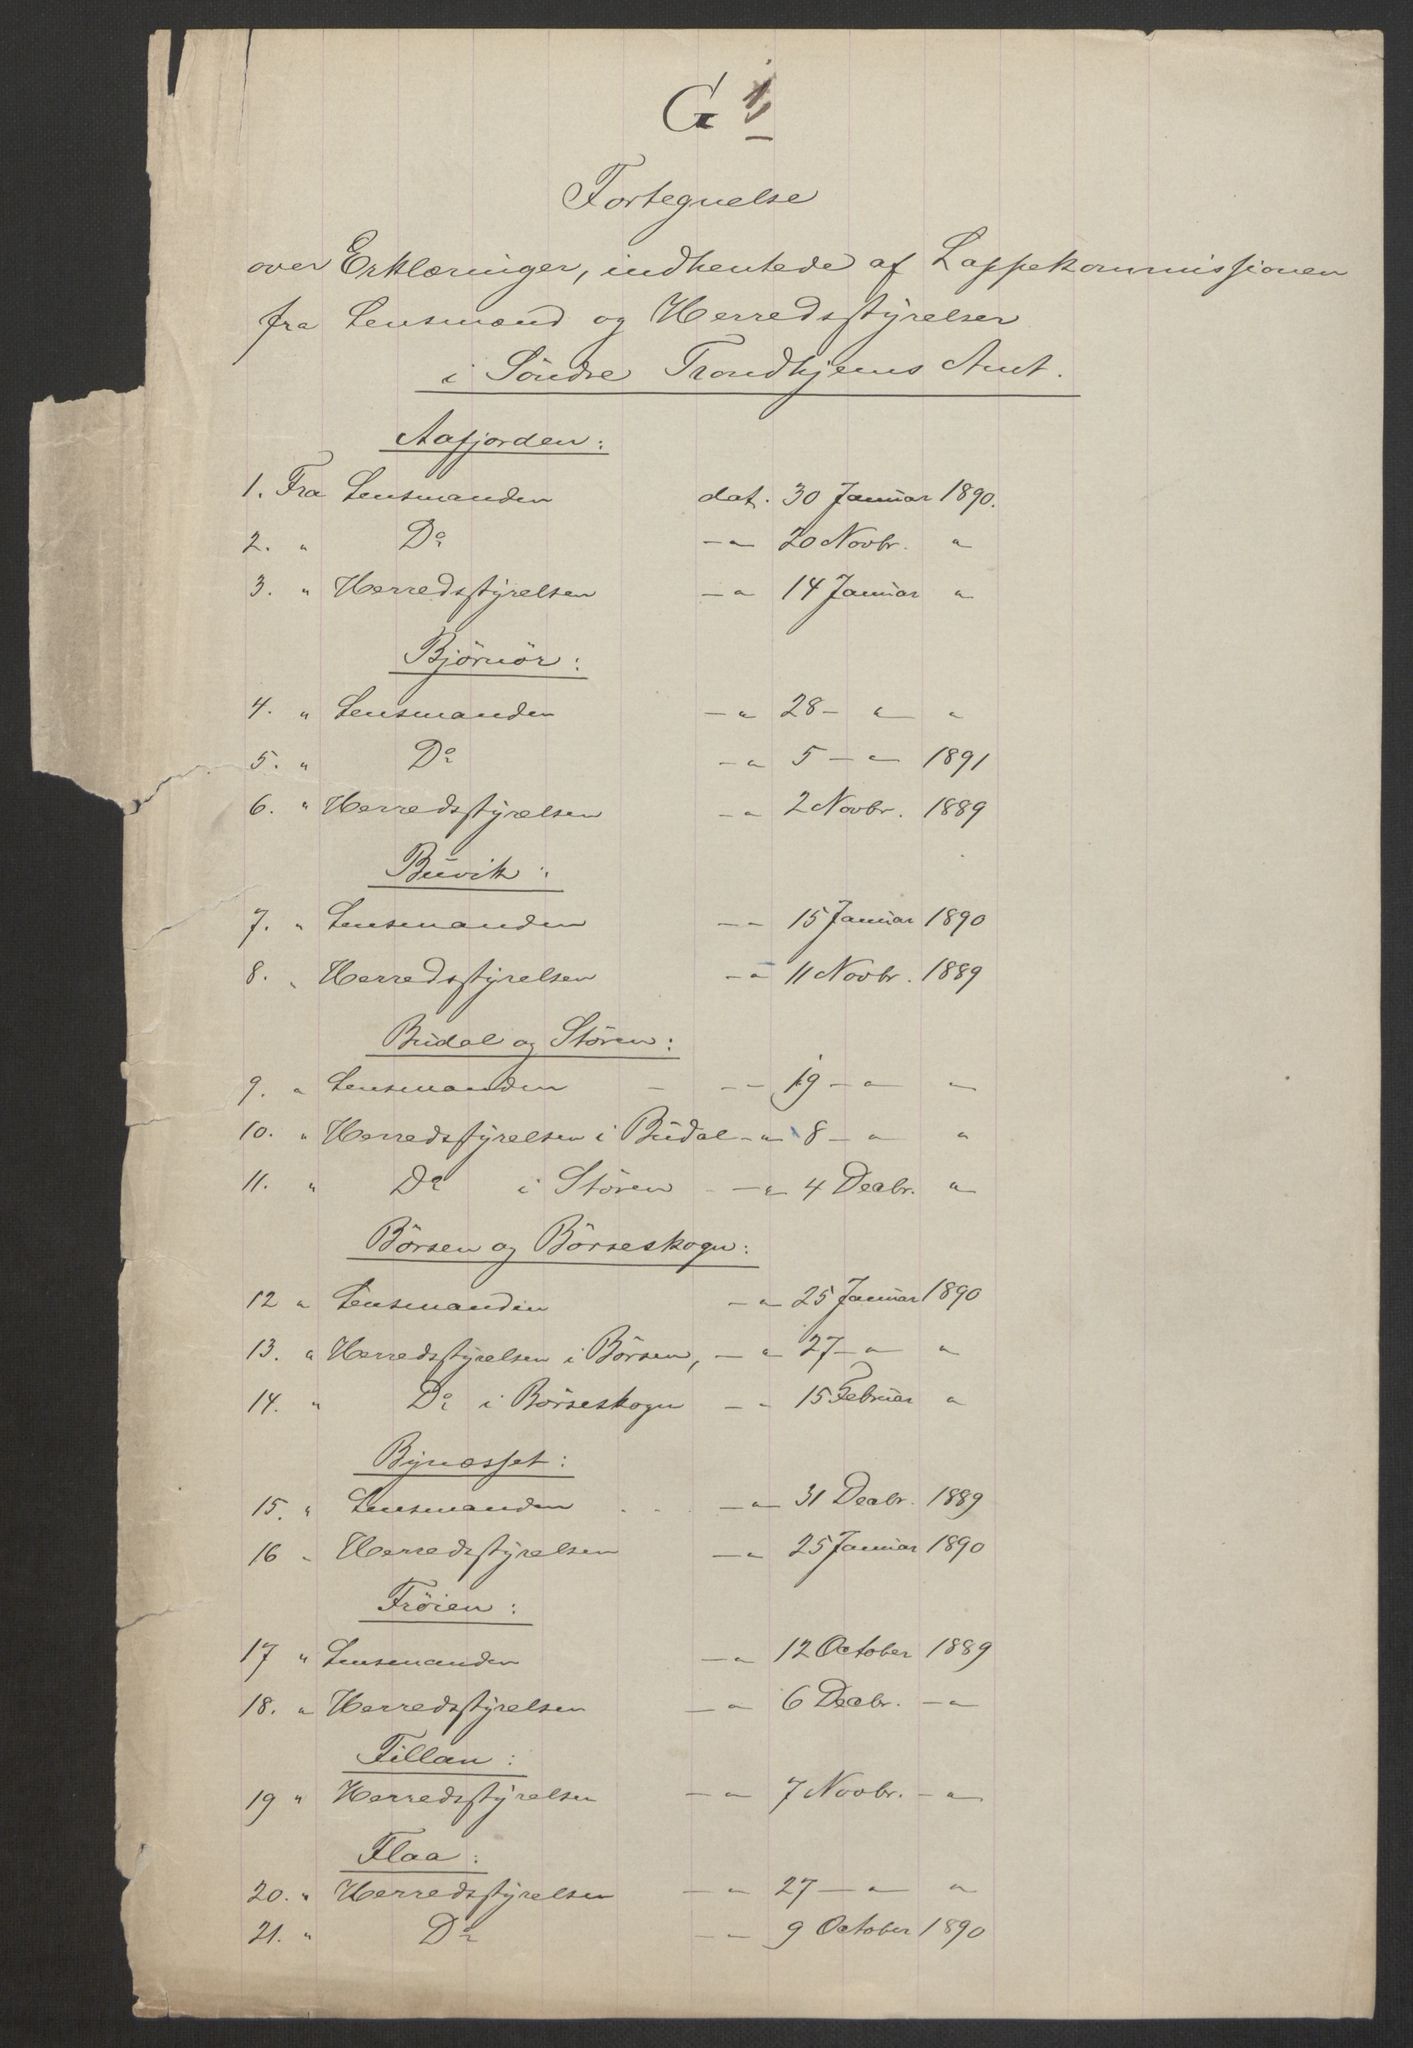 G
Fortegnelse
over Erklæringer, indhentede af Lappekommissionen
fra Lensmænd og Herredsstyrelser
i Söndre Trondhjems Amt.
Aafjorden:
1. Fra Lensmanden dat. 30 Januar 1890.
2. " Do — " 20 Novbr. "
3. " Herredsstyrelsen — " 14 Januar "
Björnör:
4. " Lensmanden — " 28 — " — "
5. " Do — " 5 — " — 1891
6. " Herredsstyrelsen — " 2 Novbr. 1889
Buvik:
7. " Lensmanden — " 15 Januar 1890
8. " Herredsstyrelsen — " 11 Novbr. 1889
Budal og Stören:
9. " Lensmanden — — " 19 — " — "
10. " Herredsstyrelsen i Budal — " 8 — " — "
11. " Do i Stören — " 4 Decbr. "
Börsen og Börseskogn:
12 " Lensmanden — " 25 Januar 1890
13. " Herredsstyrelsen i Börsen, — " 27 — " — "
14. " Do i Börseskogn — " 15 Februar "
Bynæsset:
15. " Lensmanden . . . — " 31 Decbr. 1889
16 " Herredsstyrelsen — " 25 Januar 1890
Fröien:
17 " Lensmanden — " 12 October 1889
18. " Herredsstyrelsen — " 6 Decbr. — "
Fillan:
19 " Herredsstyrelsen — " 7 Novbr. — "
Flaa:
20. " Herredsstyrelsen — " 27 — " — "
21. " Do — " 9 October 1890